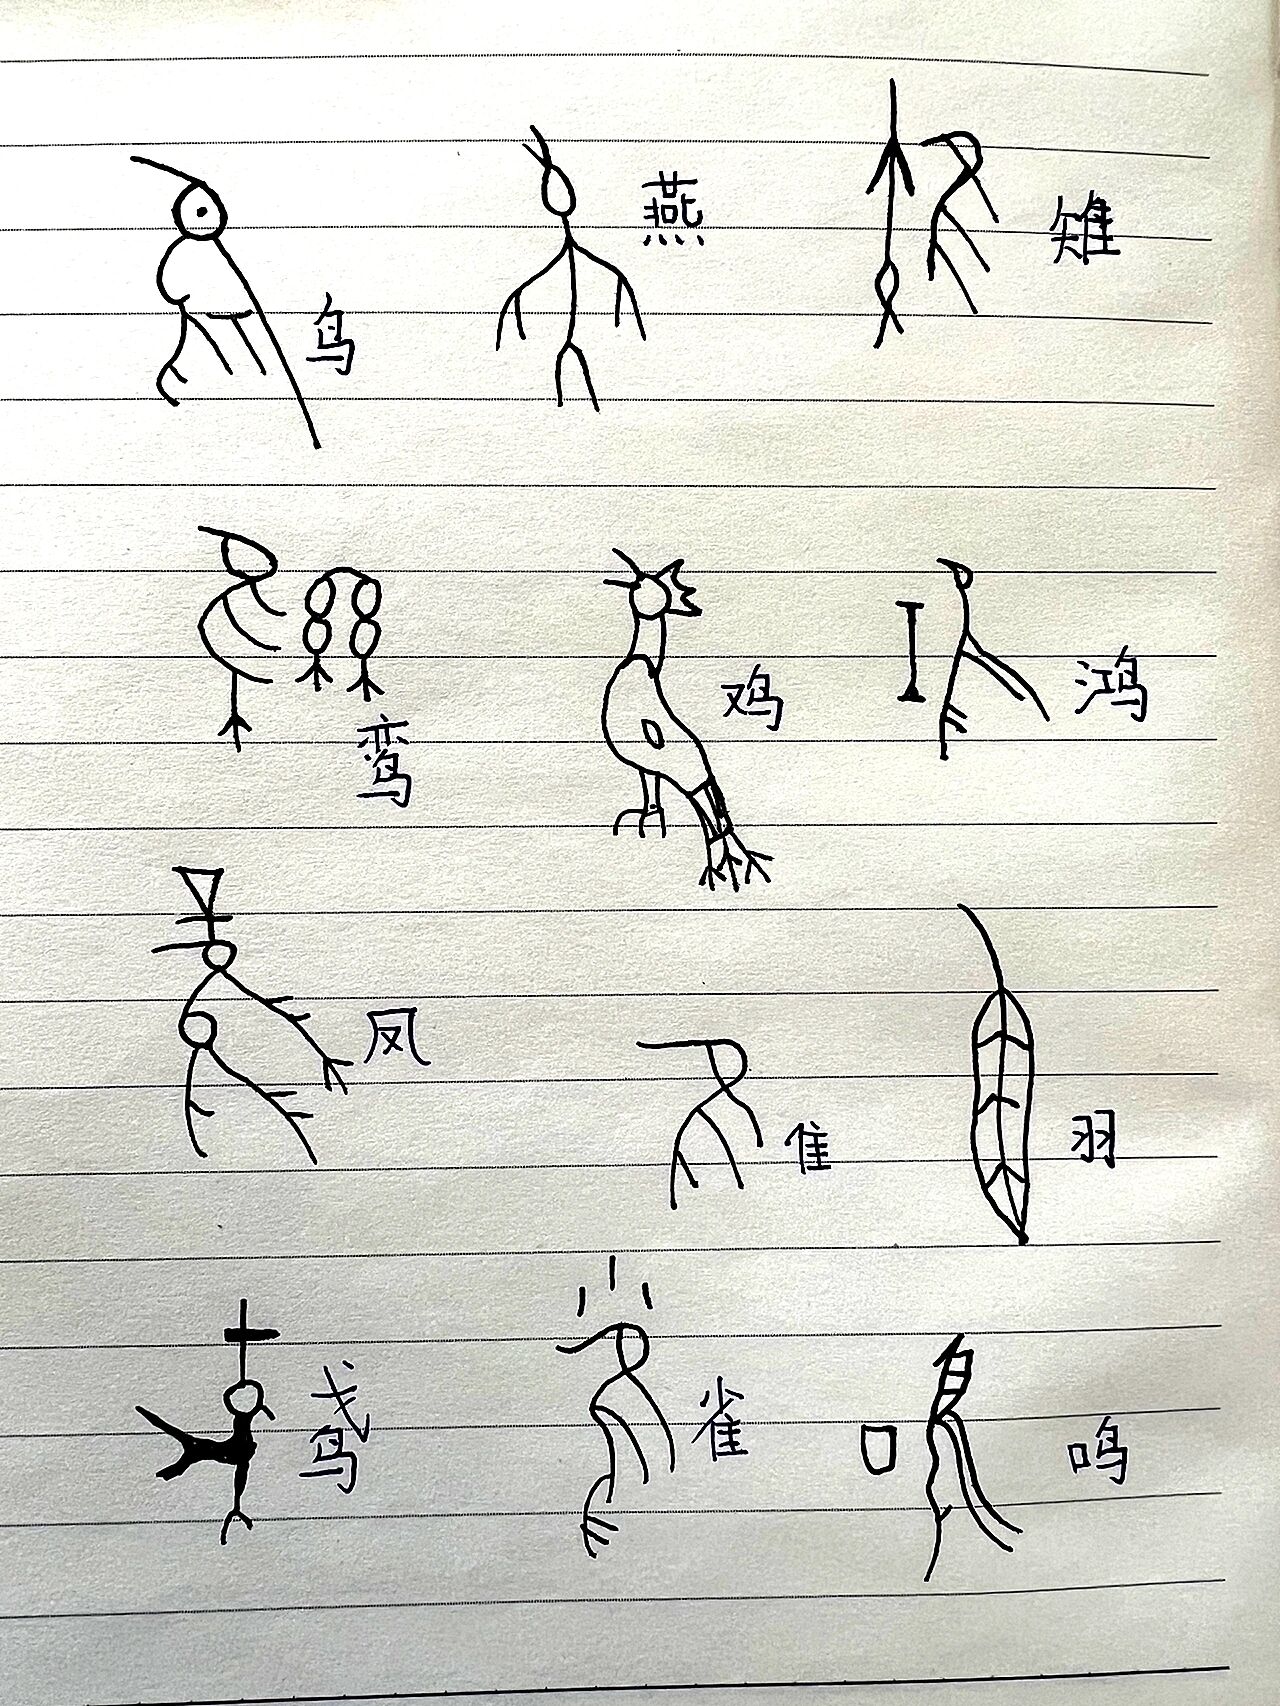 鸟
燕
雉
鸾
鸡
鸿
凤
隹
羽
鸢
雀
鸣